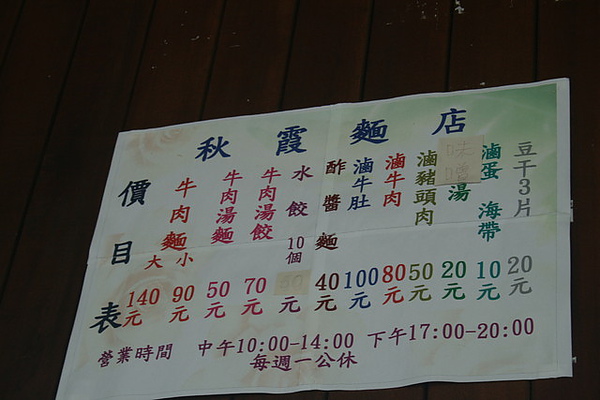 秋霞麵店
價目表
牛肉麵 大 小 140元 90元
牛肉湯麵 50元
牛肉湯餃 70元
水餃 10個 50元
酢醬麵 40元
滷牛肚 100元
滷牛肉 80元
滷豬頭肉 50元
味噌湯 20元
滷蛋 海帶 10元
豆干3片 20元
營業時間 中午10:00-14:00 下午17:00-20:00
每週一公休